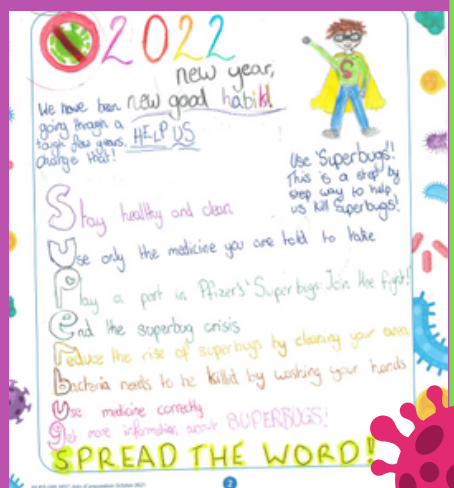 2022
new year,
new good habits!
We have been
going through a
tough few years,
change that!
HELP US
S
Use 'Superbugs'!
This is a step by
step way to help
us kill Superbugs!
Stay healthy and clean
Use only the medicine you are told to take
Play a part in Pfizer's 'Superbugs: Join the fight!'
End the superbug crisis
reduce the rise of superbugs by cleaning your area
bacteria needs to be killed by washing your hands
Use medicine correctly
get more information about SUPERBUGS!
SPREAD THE WORD!
2